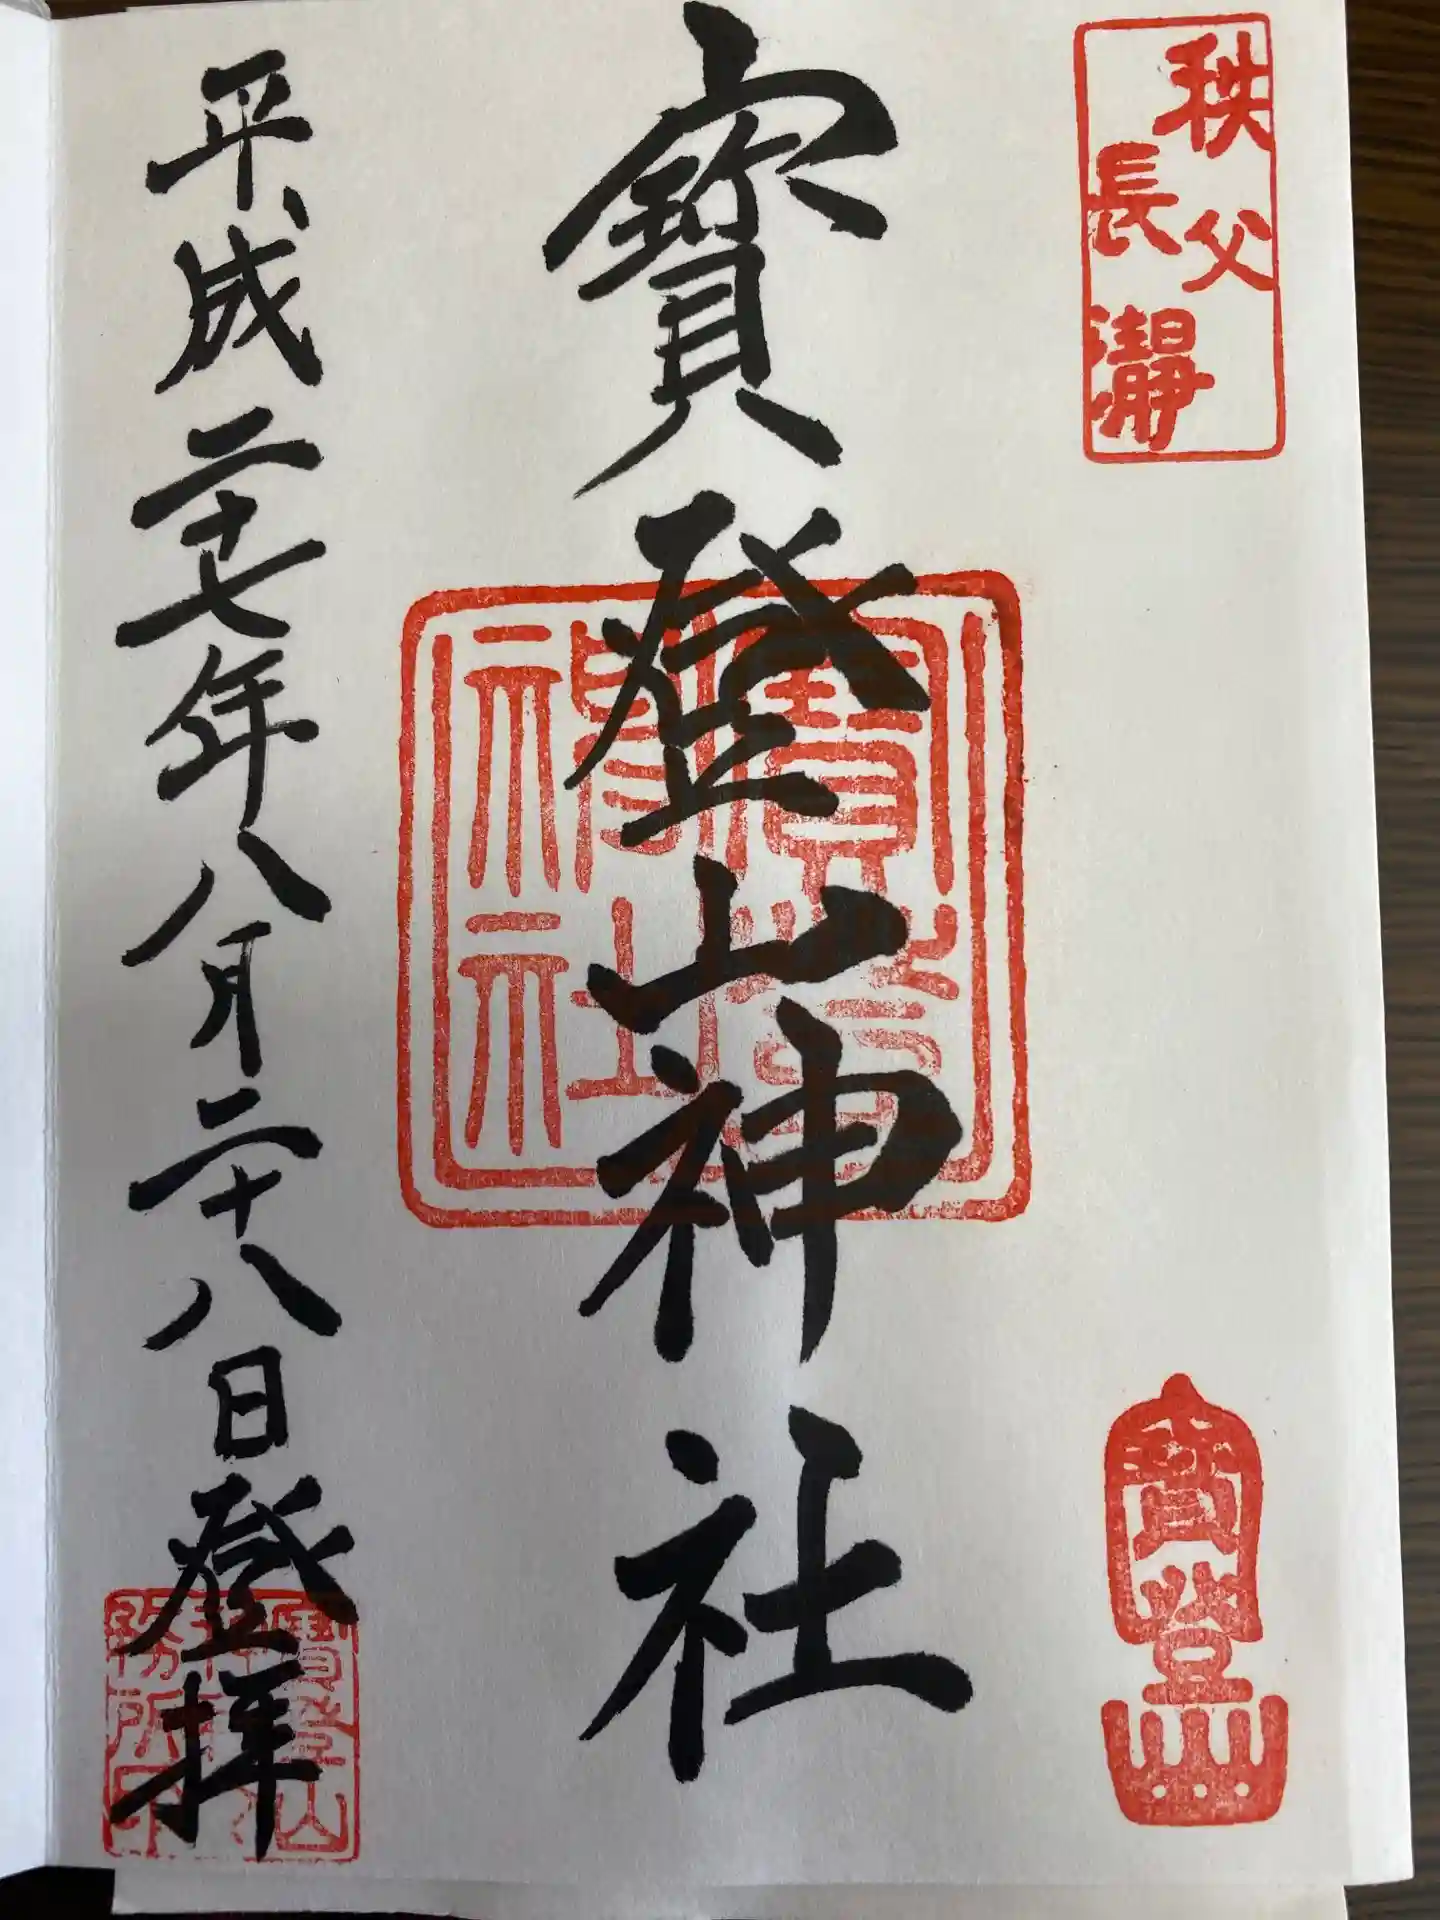 秩父
長瀞
寶登山
寶登山神社
寶登山神社
平成二十七年八月二十八日登拝